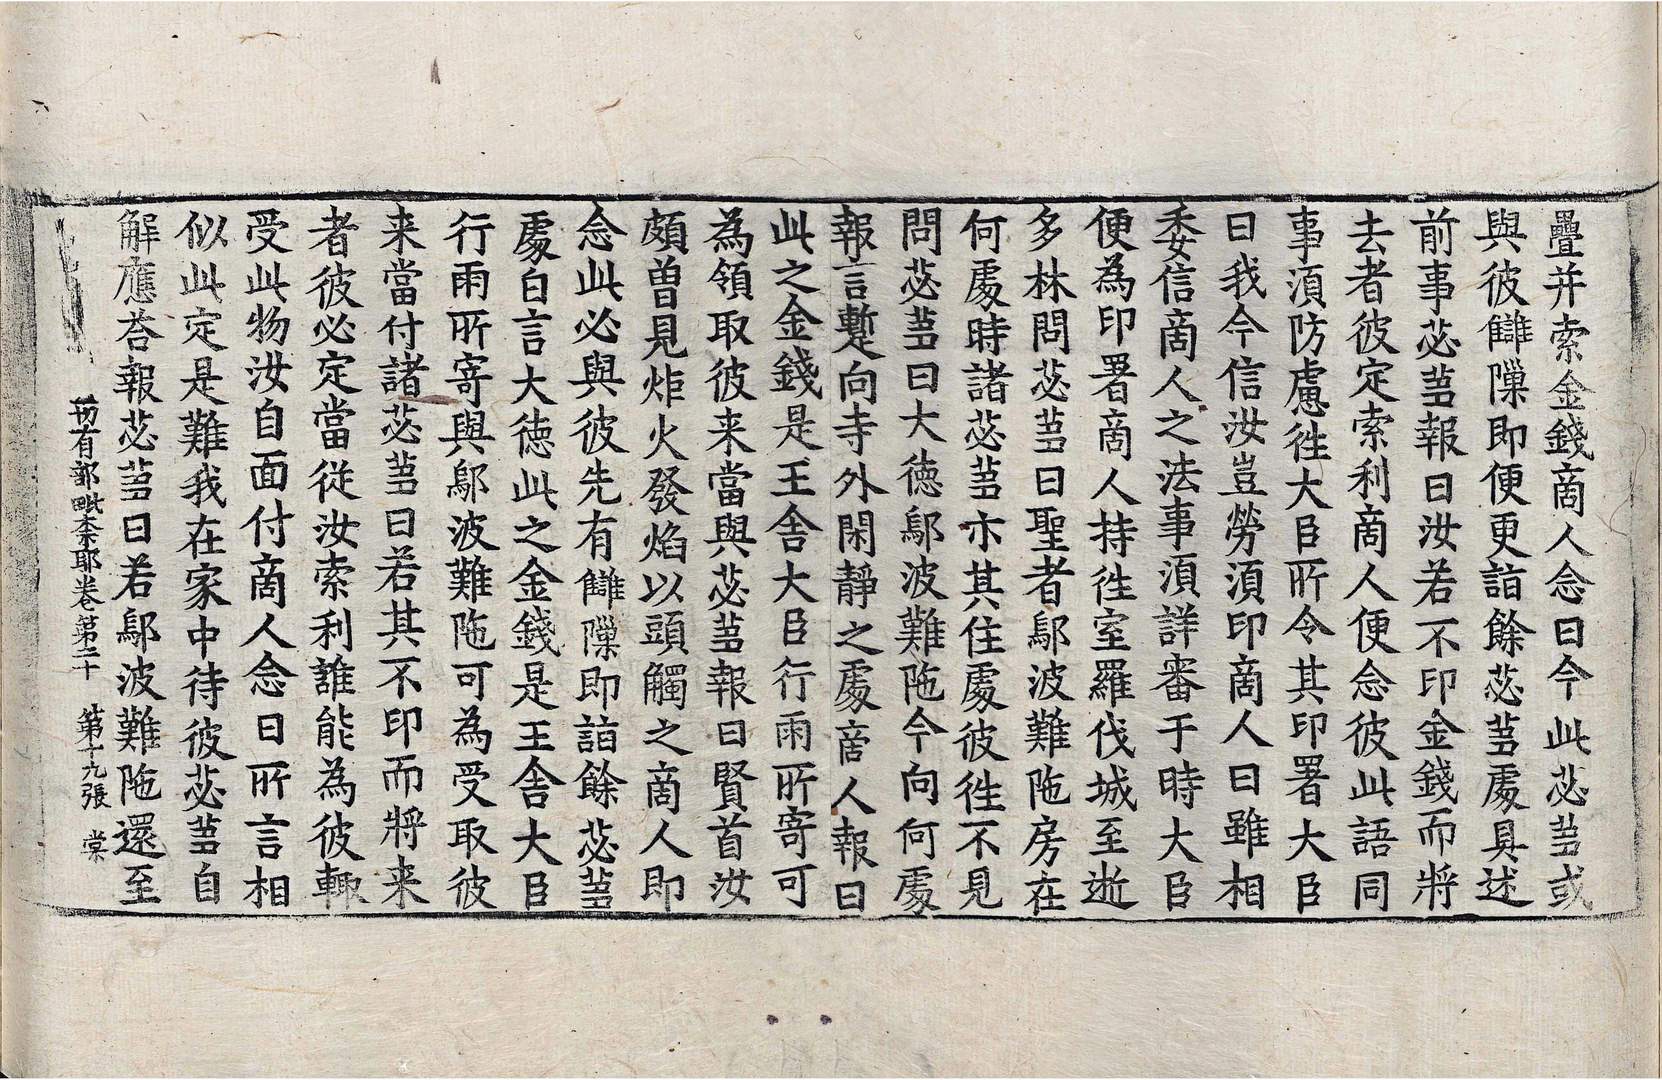 疊并索金錢啇人念曰今此苾蒭或
與彼讎隟即便更詣餘苾蒭處具述
前事苾蒭報曰汝若不印金錢而將
去者彼定索利啇人便念彼此語同
事須防慮徃大臣所令其印署大臣
曰我今信汝豈勞須印啇人曰雖相
委信啇人之法事須詳審于時大臣
便為印署啇人持徃室羅伐城至逝
多林問苾蒭曰聖者鄔波難陁房在
何處時諸苾蒭亦其住處彼徃不見
問苾蒭曰大徳鄔波難陁今向何處
報言蹔向寺外閑靜之處啇人報曰
此之金錢是王舍大臣行雨所寄可
為領取彼来當與苾蒭報曰賢首汝
頗曽見炸火發焰以頭觸之啇人即
念此必與彼先有讎隟即詣餘苾蒭
處白言大徳此之金錢是王舍大臣
行雨所寄與鄔波難陁可為受取彼
来當付諸苾蒭曰若其不印而將来
者彼必定當從汝索利誰能為彼輙
受此物汝自面付啇人念曰所言相
似此定是難我在家中待彼苾蒭自
解應荅報苾蒭曰若鄔波難陁還至
一切有部毗奈耶卷第二十　第十九張　棠